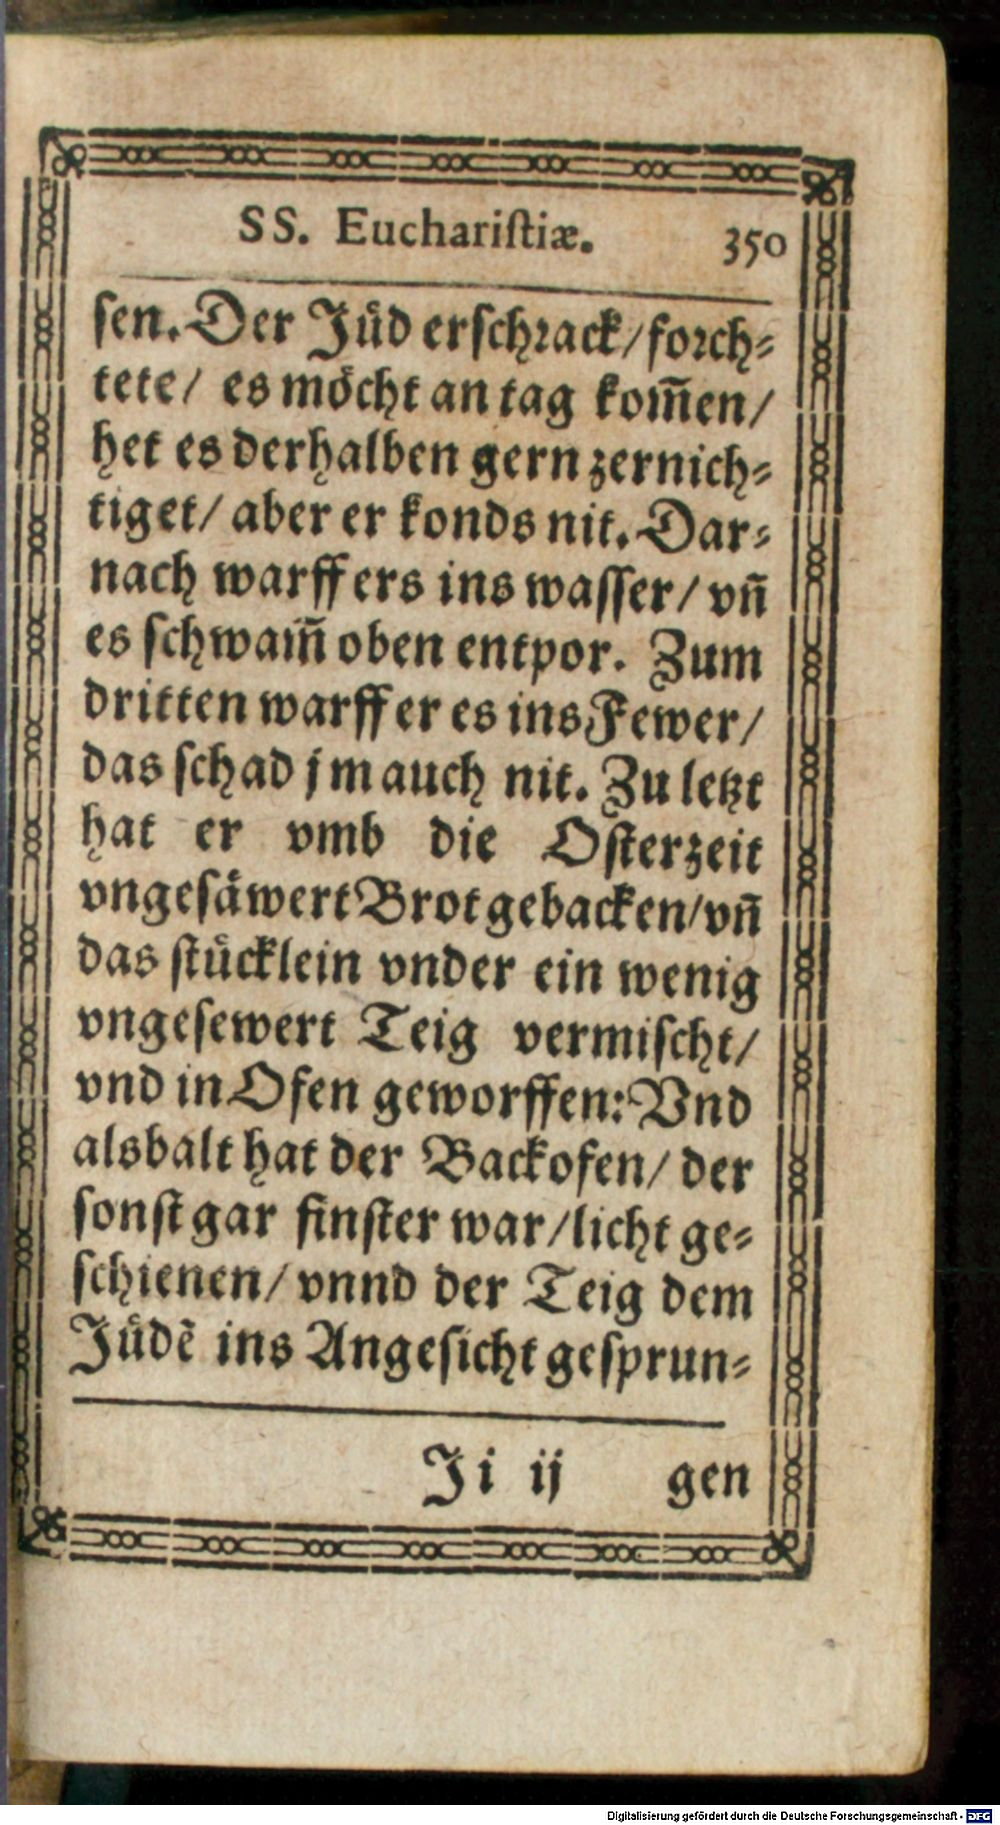 SS. Euchariſtiæ. 350
ſen. Der Jüd erſchrack/ forch⸗
tete/ es möcht an tag kom̃en/
het es derhalben gern zernich⸗
tiget/ aber er konds nit. Dar⸗
nach warff ers ins waſſer/ vñ
es ſchwam̃ oben entpor. Zum
dritten warff er es ins Fewer/
das ſchad jm auch nit. Zu letzt
hat er vmb die Oſterzeit
vngeſäwert Brot gebacken/ vñ
das ſtücklein vnder ein wenig
vngeſewert Teig vermiſcht/
vnd in Ofen geworffen: Vnd
alsbalt hat der Backofen/ der
ſonſt gar finſter war/ licht ge⸗
ſchienen/ vnnd der Teig dem
Jüdẽ ins Angeſicht geſprun⸗
Ji ij gen
Digitalisierung gefördert durch die Deutsche Forschungsgemeinschaft - DFG